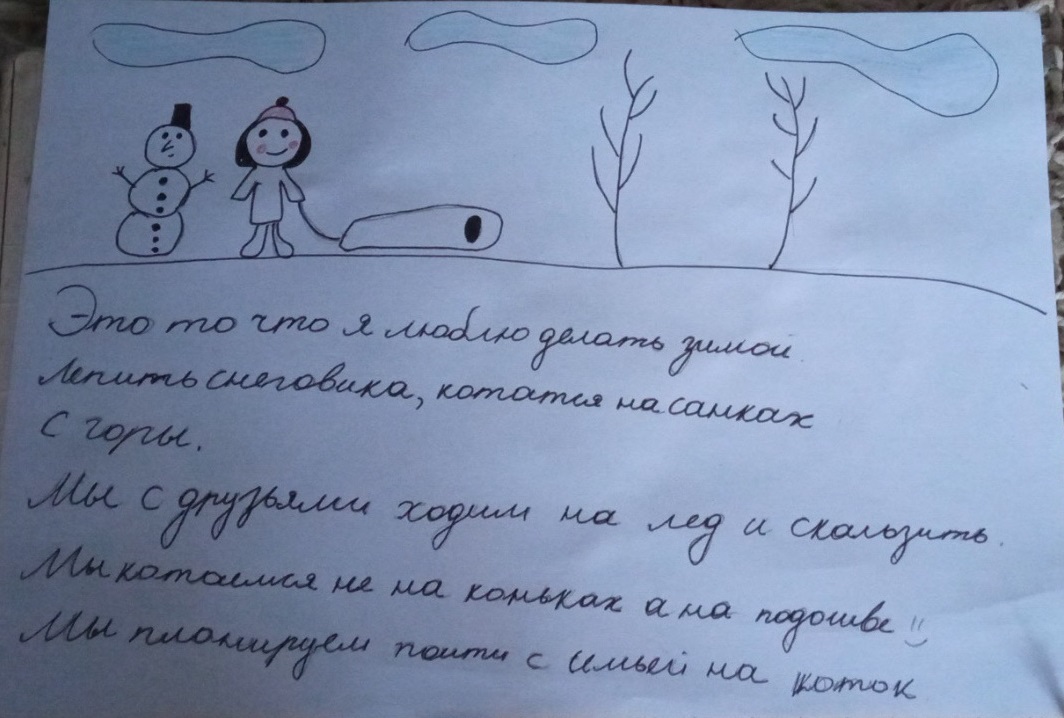 Это то что я люблю делать зимой.
Лепить снеговика, кататся на санках
с горы.
Мы с друзьями ходим на лед и скользить.
Мы катаемся не на коньках а на подошве
Мы планируем поити с семьей на каток